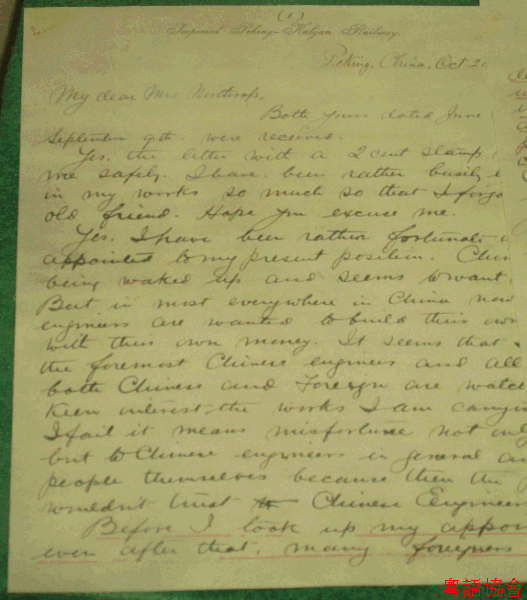 (1)
Imperial Peking-Kalgan Railway.
Peking, China, Oct 2
My dear Mrs Northrop,
Both yours dated June
September 9th were received.
Yes. the letter with a 2 cent stamp
me safely. I have been rather busily e
in my works so much so that I forgo
old friend. Hope you excuse me.
Yes. I have been rather fortunate
appointed to my present position. Chin
being waked up and seems to want
But in most everywhere in China now
engineers are wanted to build their own
with their own money. It seems that
the foremost Chinese engineers and all
both Chinese and Foreign are watc
keen interest the works I am carryin
I fail it means misfortune not only
but to Chinese engineers in general an
people themselves because then the
wouldn't trust Chinese Engineer
Before I took up my appoin
even after that, many foreigners
粵語協會